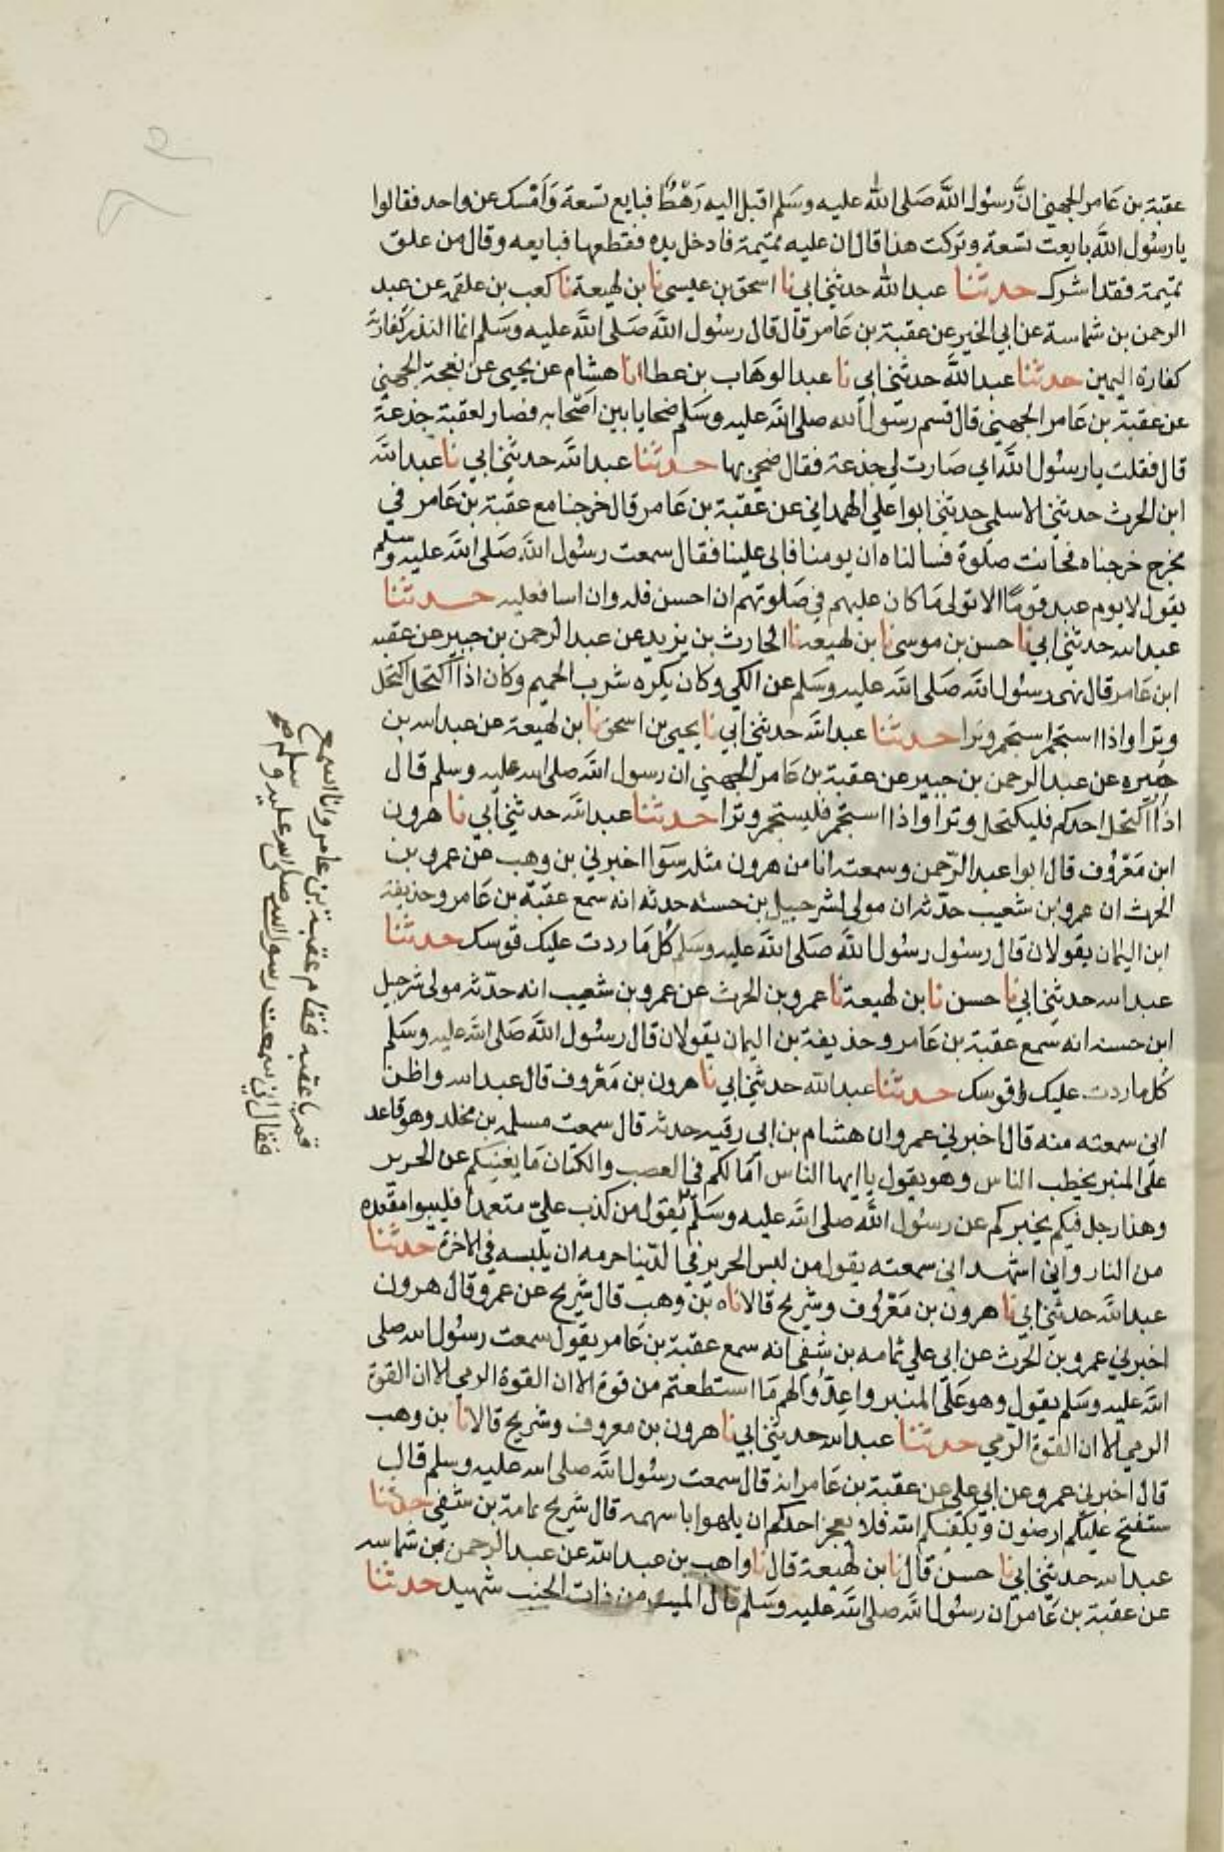 عقبة بن عَامر الجهني انَّ رسُول اللَّه صَلى الله عليه وسَلم اقبل اليه رَهْطٌ فبايع تسعة وَأمْسك عن واحد فقالوا
يا رسُول اللَّه بايعت تسعة وتركت هذا قال ان عليه تميمة فادخل يده فقطعها فبايعه وقال من علق
تميمة فقد اشرك حدثنا عبد الله حدثني ابي نا اسحق بن عيسى نا بن لهيعة نا كعب بن علقمه عن عبد
الرحمن بن شماسة عن ابي الخير عن عقبة بن عَامر قال قال رسُول اللَّه صَلى اللَّه عليه وسَلم انما النذر كفارته
كفارة اليمين حدثنا عبد اللَّه حدثني ابي نا عبد الوهَاب بن عطا انا هشام عن يحيى عن بعجة الجهني
عن عقبة بن عَامر الجهني قال قسم رسُول الله صلى اللَّه عليه وسَلم ضحايا بين اصْحابه فصار لعقبة جذعة
قال فقلت يا رسُول اللَّه اني صَارت لي جذعة فقال ضحي بها حدثنا عبد اللَّه حدثني ابي نا عبد اللَّه
ابن الحرث حدثني الاسلمي حدثني ابوا علي الهمداني عن عقبة بن عَامر قال خرجنا مع عقبة بن عَامر في
مخرج خرجناه فحانت صَلوة فسالناه ان يومنا فابى علينا فقال سمعت رسُول اللَّه صَلى اللَّه عليه وسلم
يقول لا يوم عبد قومًا الا تولى مَا كان عليهم في صَلوتهم ان احسن فله وان اسا فعليه حدثنا
عبد الله حدثني ابي نا حسن بن موسى نا بن لهيعه نا الحارث بن يزيد عن عبد الرحمن بن جبير عن عقبه
ابن عَامر قال نهى رسُول اللَّه صَلى اللَّه عليه وسَلم عن الكي وكان يكره شرب الحميم وكان اذا اكتحل اكتحل
وترا واذا استجمر استجمر وترا حدثنا عبد اللَّه حدثني ابي نا يحيى بن اسحق نا بن لهيعة عن عبد الله بن
هبيره عن عبد الرحمن بن جبير عن عقبة بن عَامر الجهني ان رسول اللَّه صلى الله عليه وسلم قال
اذا اكتحل احدكم فليكتحل وترا واذا استجمر فليستجمر وترا حدثنا عبد اللَّه حدثني ابي نا هرون
ابن مَعْرُوف قال ابوا عبد الرّحمن وسمعته انا من هرون مثله سَوا اخبرني بن وهب عن عمرو بن
الحرث ان عمرو بن شعيب حدّثه ان مولى لشرحبيل بن حسنه حدثه انه سمع عقبة بن عَامر وحذيفة
ابن اليمان يقولان قال رسُول رسُول اللَّه صَلى اللَّه عليه وسَلم كُل مَا ردت عليك قوسك حدثنا
عبد الله حدثني ابي نا حسن نا بن لهيعة نا عمرو بن الحرث عن عمرو بن شعيب انه حدّثه مولى شرحبيل
ابن حسنه انه سمع عقبة بن عَامر وحذيفة بن اليمان يقولان قال رسُول اللَّه صَلى اللَّه عليه وسَلم
كُل ما ردت عليك قوسك حدثنا عبد الله حدثني ابي نا هرون بن مَعْروف قال عبد الله واظن
اني سمعته منه قال اخبرني عمرو ان هشام بن ابي رقيه حدثه قال سمعت مسلمه بن مخلد وهو قاعد
على المنبر يخطب الناس وهو يقول يا ايها الناس امَا لكم في العصب والكتان مَا يغنيكم عن الحرير
وهذا رجل فيكم يخبركم عن رسُول اللَّه صلى اللَّه عليه وسَلم يقول من كذب عليّ متعمدا فليتبوا مقعده
من النار واني اشهد اني سمعته يقول من لبس الحرير في الدّنيا حرمه ان يلْبسه في الاخرة حدثنا
عبد اللَّه حدثني ابي نا هرون بن مَعْرُوف وشريح قالا نا بن وهب قال شريح عن عمرو وقال هرون
اخبرني عمرو بن الحرث عن ابي علي ثمامه بن شفي انه سمع عقبة بن عَامر يقول سمعت رسُول الله صلى
اللَّه عليه وسَلم يقول وهو عَلى المنبر واعِدّوا لهم مَا استطعتم من قوة الا ان القوة الرمي الا ان القوة
الرمي الا ان القوة الرّمي حدثنا عبد الله حدثني ابي نا هرون بن معروف وشريح قالا نا بن وهب
قال اخبرني عمرو عن ابي علي عن عقبة بن عَامر انه قال سمعت رسُول اللَّه صلى الله عليه وسلم قال
ستفتح عليكم ارضون ويكفيكم اللَّه فلا يعجز احدكم ان يلهوا باسهمه قال شريح ثمامة بن شفي حدثنا
عبد الله حدثني ابي نا حسن قال نا بن لهيعة قال نا واهب بن عبد اللَّه عن عبد الرحمن بن شماسه
عن عقبة بن عَامر ان رسُول اللَّه صلى اللَّه عليه وسَلم قال الميت من ذات الجنب شهيد حدثنا
قم يا عقبه فقام عقبة بن عامر وانا اسمع
فقال اني سمعت رسول الله صلى الله عليه وسلم صح